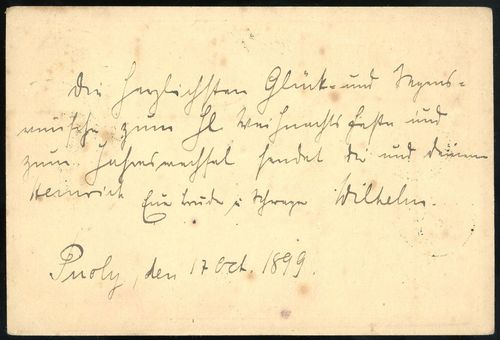 Die herzlichsten Glück- und Segens-
wünsche zum Hl Weihnachtsfeste und
zum Jahreswechsel sendet dir und deinem
Heinrich Eure u Wilhelm.
den 17 Oct. 1899.